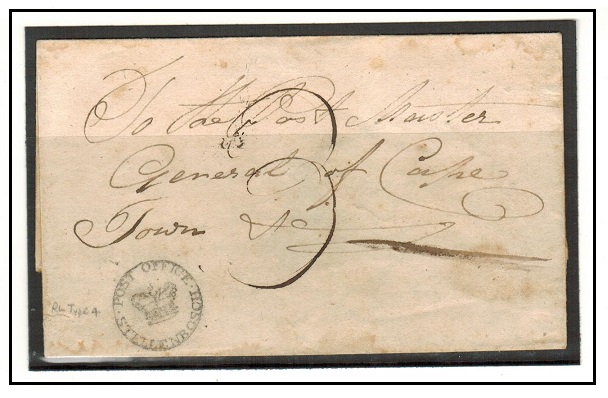 To the Post Master
General of Cape
Town &c
3
POST OFFICE · STELLENBOSCH ·
Type 4